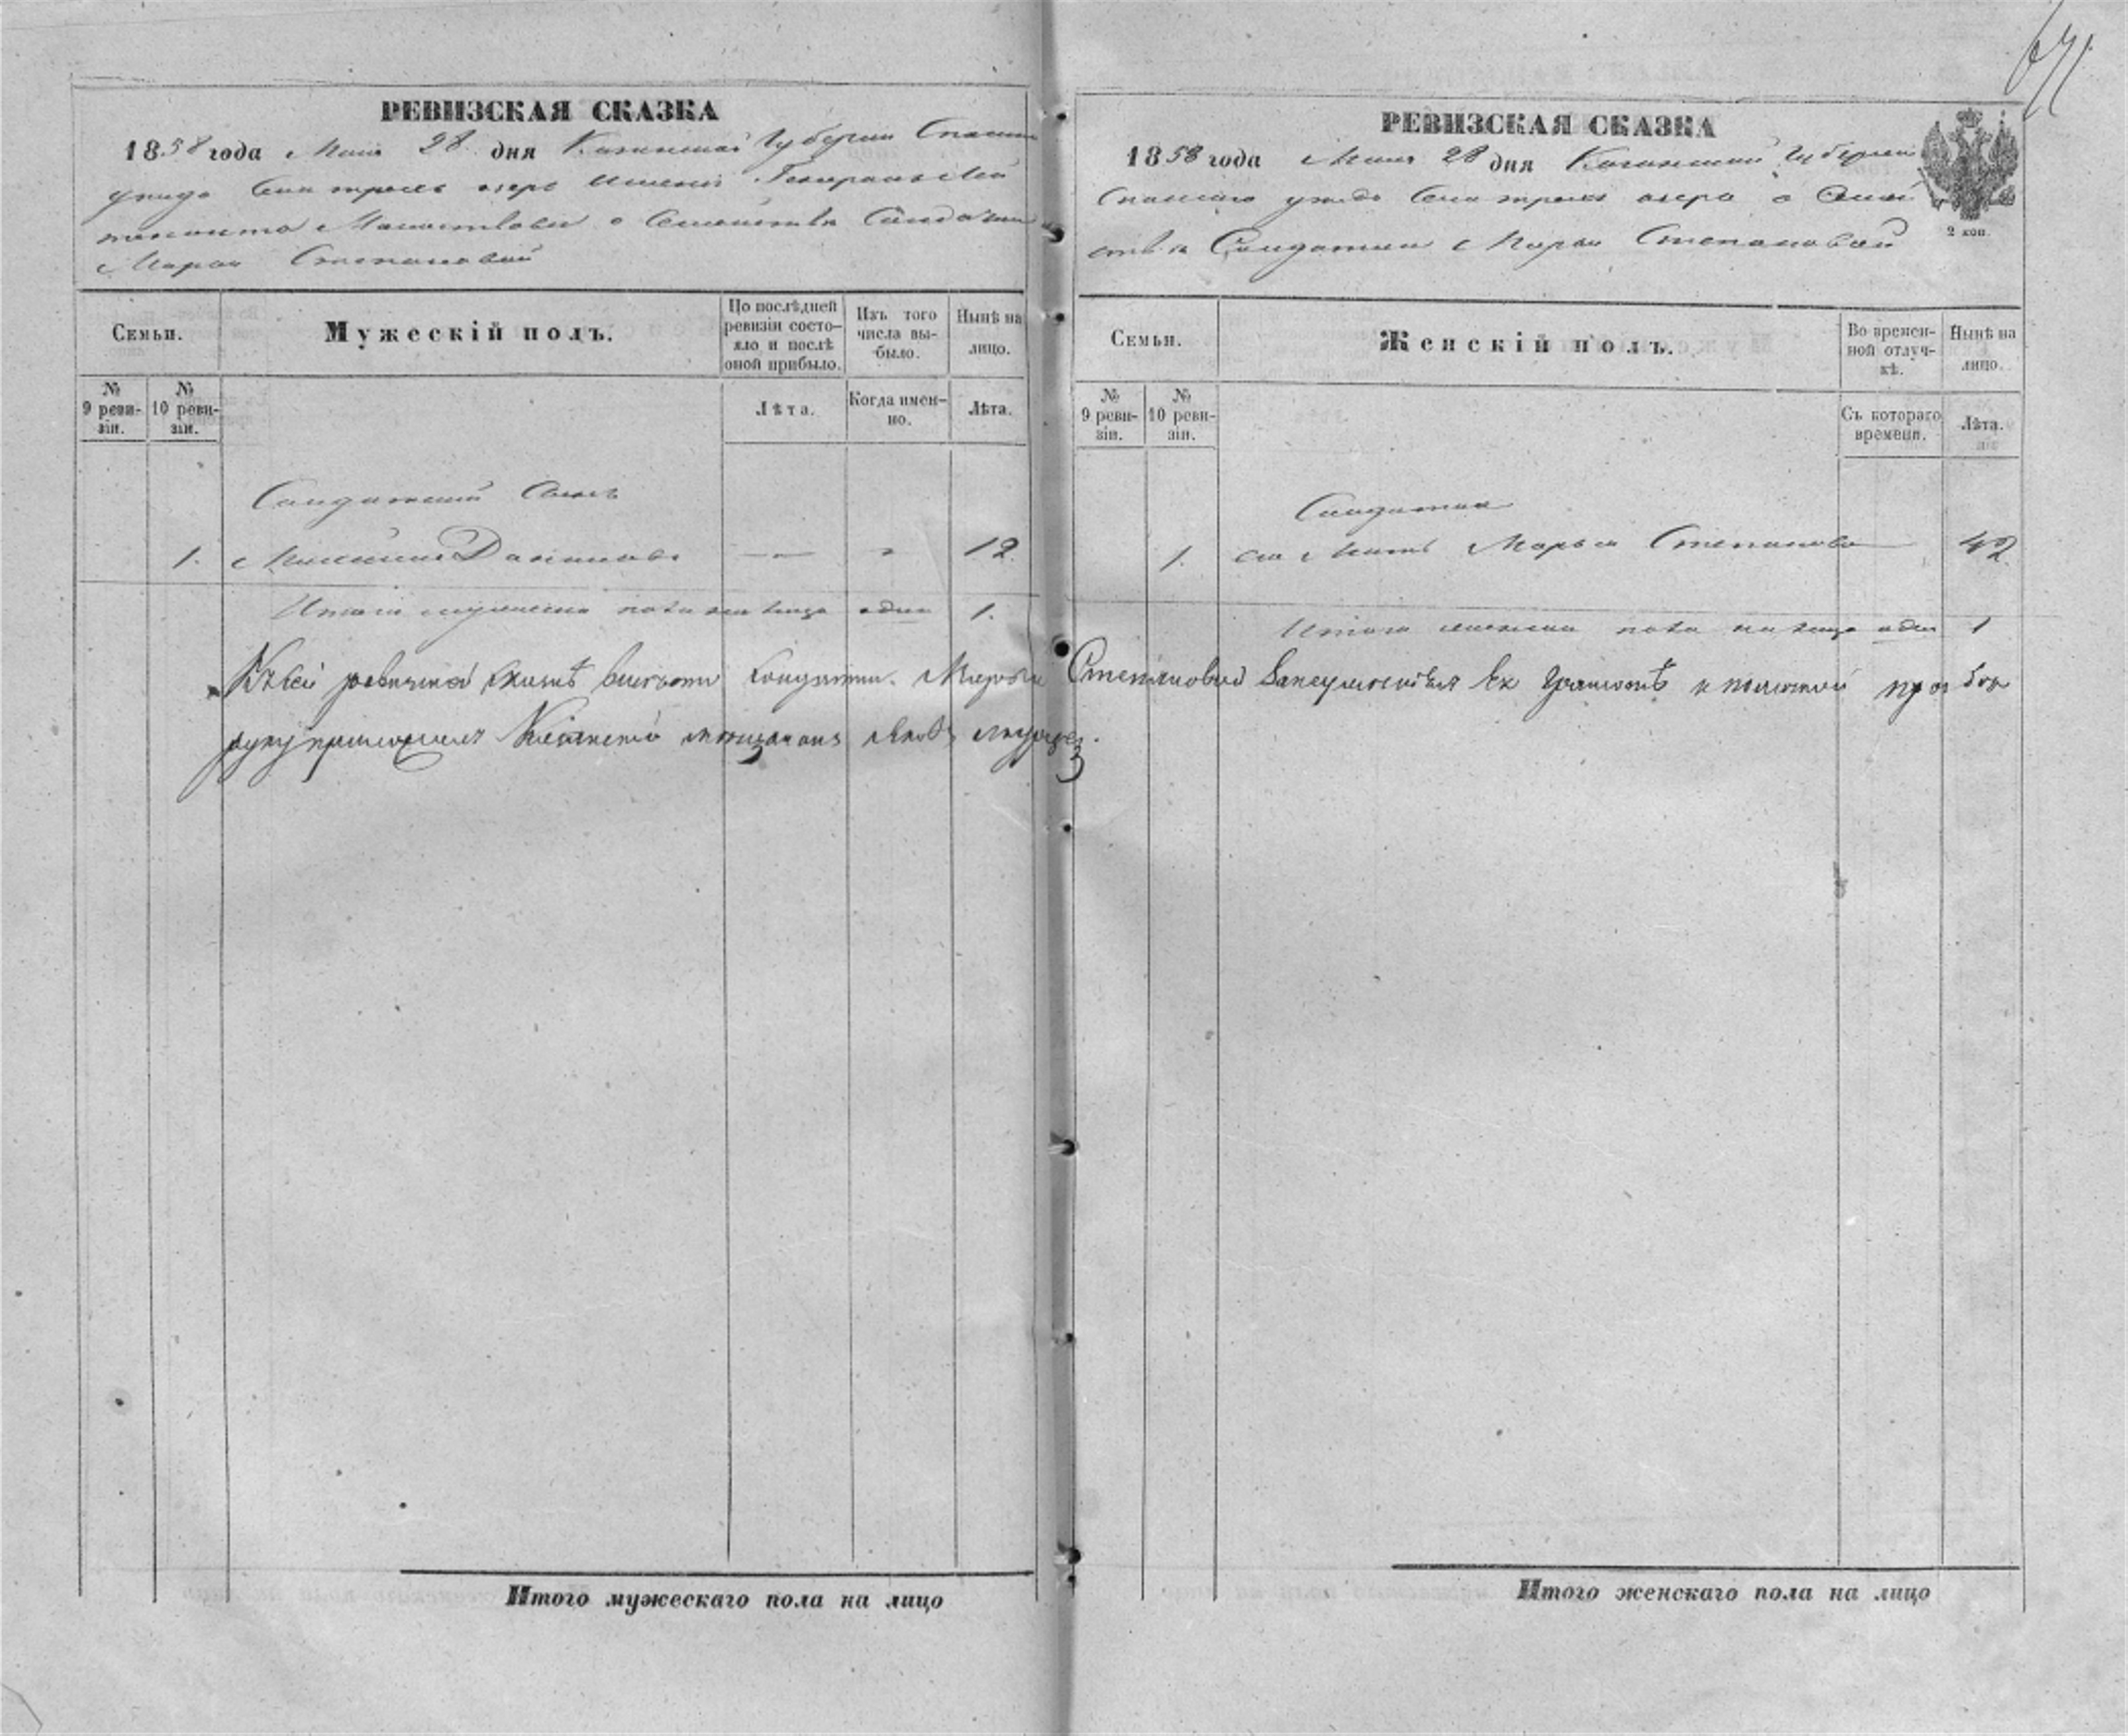 671
РЕВИЗСКАЯ СКАЗКА
1858 года Маия 28 дня Казанской Губернiи Спаскаго
уезда Села трехъ озеръ Имения Генералъ Лей
тенанта о Семействе Салдатки
Марьи Степановой
Семьи.
Мужескій полъ.
По послѣдней ревизіи состо-
яло и послѣ оной прибыло.
Изъ того числа вы-
было.
Нынѣ на лицо.
№ 9 реви-
зіи.
№ 10 реви-
зіи.
Лѣта.
Когда имен-
но.
Лѣта.
Салдатский Сынъ
1. Даниловъ — " 12.
Итого мужеска пола на лицо один 1.
Итого мужескаго пола на лицо
РЕВИЗСКАЯ СКАЗКА
1858 года Маия 28 дня Казанской Губернiи
Спаскаго уезда Села трехъ озеръ о Семей
стве Салдатки Марьи Степановой
2 коп.
Семьи.
Женскій полъ.
Во времен-
ной отлуч-
кѣ.
Нынѣ на лицо.
№ 9 реви-
зіи.
№ 10 реви-
зіи.
Съ котораго времени.
Лѣта.
Салдатка
1. его Мать Марья Степанова 42.
Итого женска пола на лицо один 1
Къ сей ревизкой скаскѣ вместо солдатки Марьи Степановой за неуменіем ея грамотѣ и по личной прозбѣ
руку приложилъ мещанинъ
Итого женскаго пола на лицо